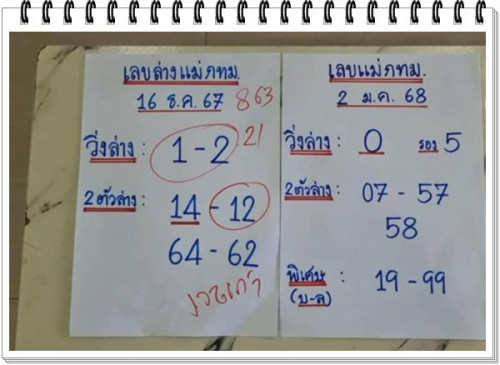 เลขล่างแม่ภทม.
16 ธ.ค. 67 863
วิ่งล่าง : 1-2 21
2ตัวล่าง : 14 - 12
64 - 62
งวดเก่า
เลขแม่ภทม.
2 ม.ค. 68
วิ่งล่าง : 0 รอง 5
2ตัวล่าง : 07 - 57
58
พิเศษ : 19 - 99
(บ-ล)